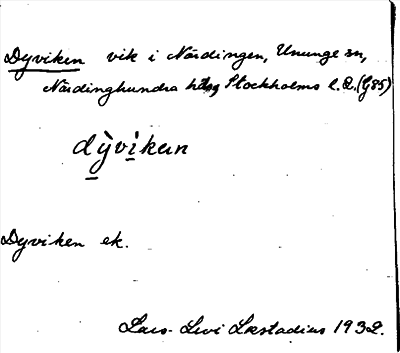 Dyviken vik i Närdingen, Ununge sn,
Närdinghundra hd, Stockholms l. (G85)
dỳvìkan
Dyviken ek.
Lars-Levi Læstadius 1932.